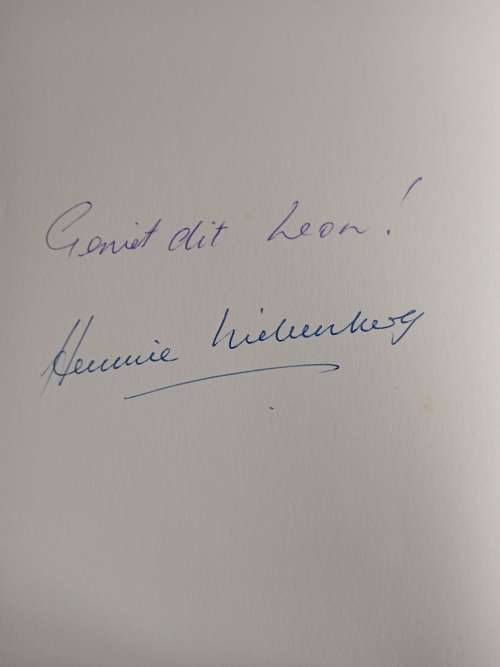 Geniet dit Leon!
Hennie Liebenberg